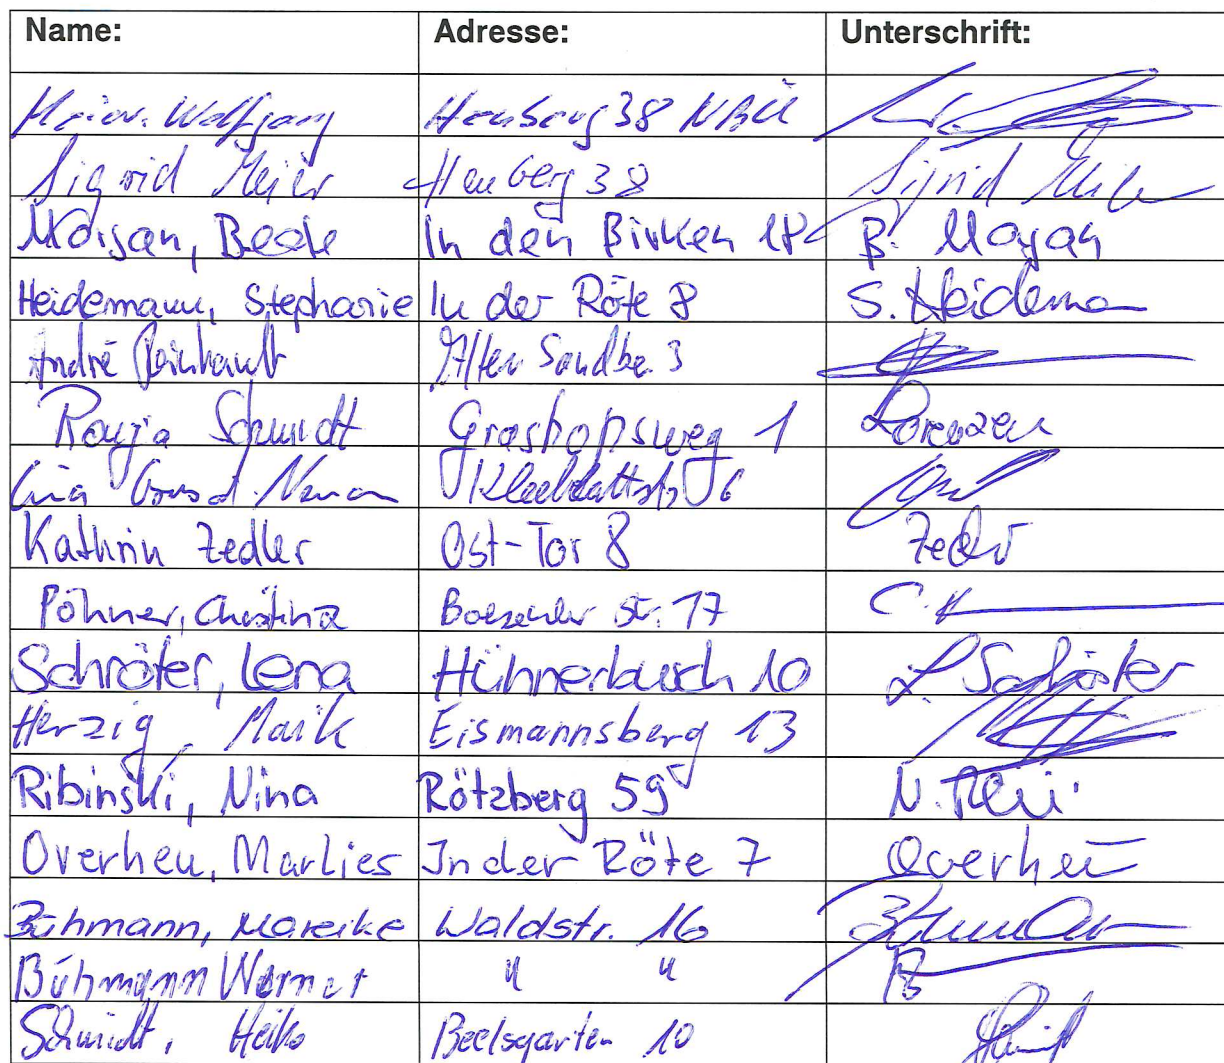 Name: Adresse: Unterschrift:
Meier. Wolfgang Heuberg 38 NBÜ
Sigrid Meier Heuberg 38 Sigrid Meier
Morgan, Beate In den Birken 18 B. Morgan
Heidemann, Stephanie In der Röte 8 S. Heidema
André Reinhardt Alter Sandbe. 3
Schmidt Grashopsweg 1 Lorenzen
Kleeblattstr 6
Kathrin Zedler Ost-Tor 8 Zedler
Pöhner, Christina Str. 17 C.
Schröter, Lena Hühnerbusch 10 L. Schröter
Herzig, Maik Eismannsberg 13
Ribinski, Nina Rötzberg 59 N.
Overheu, Marlies In der Röte 7 Overheu
Bühmann, Mareike Waldstr. 16
Bühmann Werner " " B
Schmidt, Heiko Beelsgarten 10